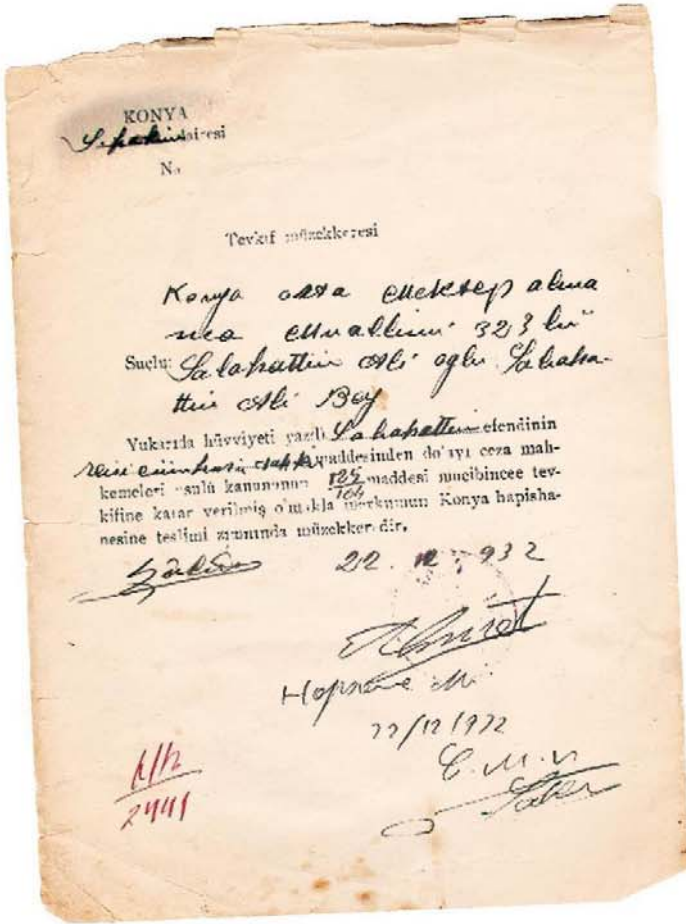 KONYA
dairesi
No
Tevkif müzekkeresi
Konya orta Mektep alma
nca Muallimi 323 lü
Suçlu: Salahattin Ali oglu Sabaha-
ttin Ali Bey
Yukarıda hüvviyeti yazılı Sabahattin efendinin
maddesinden do'ayı ceza mah-
kemeleri usulü kanununun 104 maddesi mucibincee tev-
kifine karar verilmiş olmakla merkumun Konya hapisha-
nesine teslimi zımnında müzekkeredir.
22. 12. 932
Hapsane M.
22/12/932
C. M. U